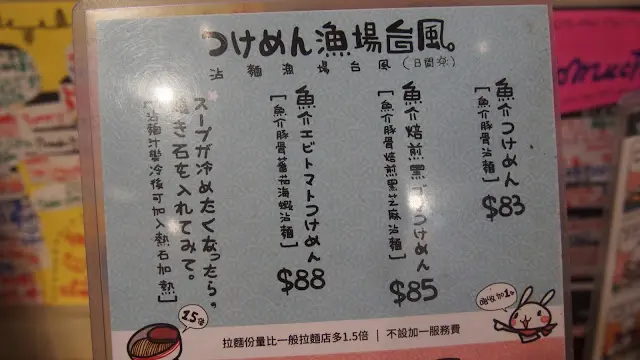 つけめん漁場台風。
沾麵漁場台風(日間祭)
魚介つけめん
[魚介豚骨沾麵]
$83
魚介焙煎黑ゴマつけめん
[魚介豚骨焙煎黑芝麻沾麵]
$85
魚介エビトマトつけめん
[魚介豚骨蕃茄海蝦沾麵]
$88
スープが冷めたくなったら。
焼き石を入れてみて。
[沾麵汁變冷後可加入熱石加熱]
1.5倍
拉麵份量比一般拉麵店多1.5倍 | 不設加一服務費